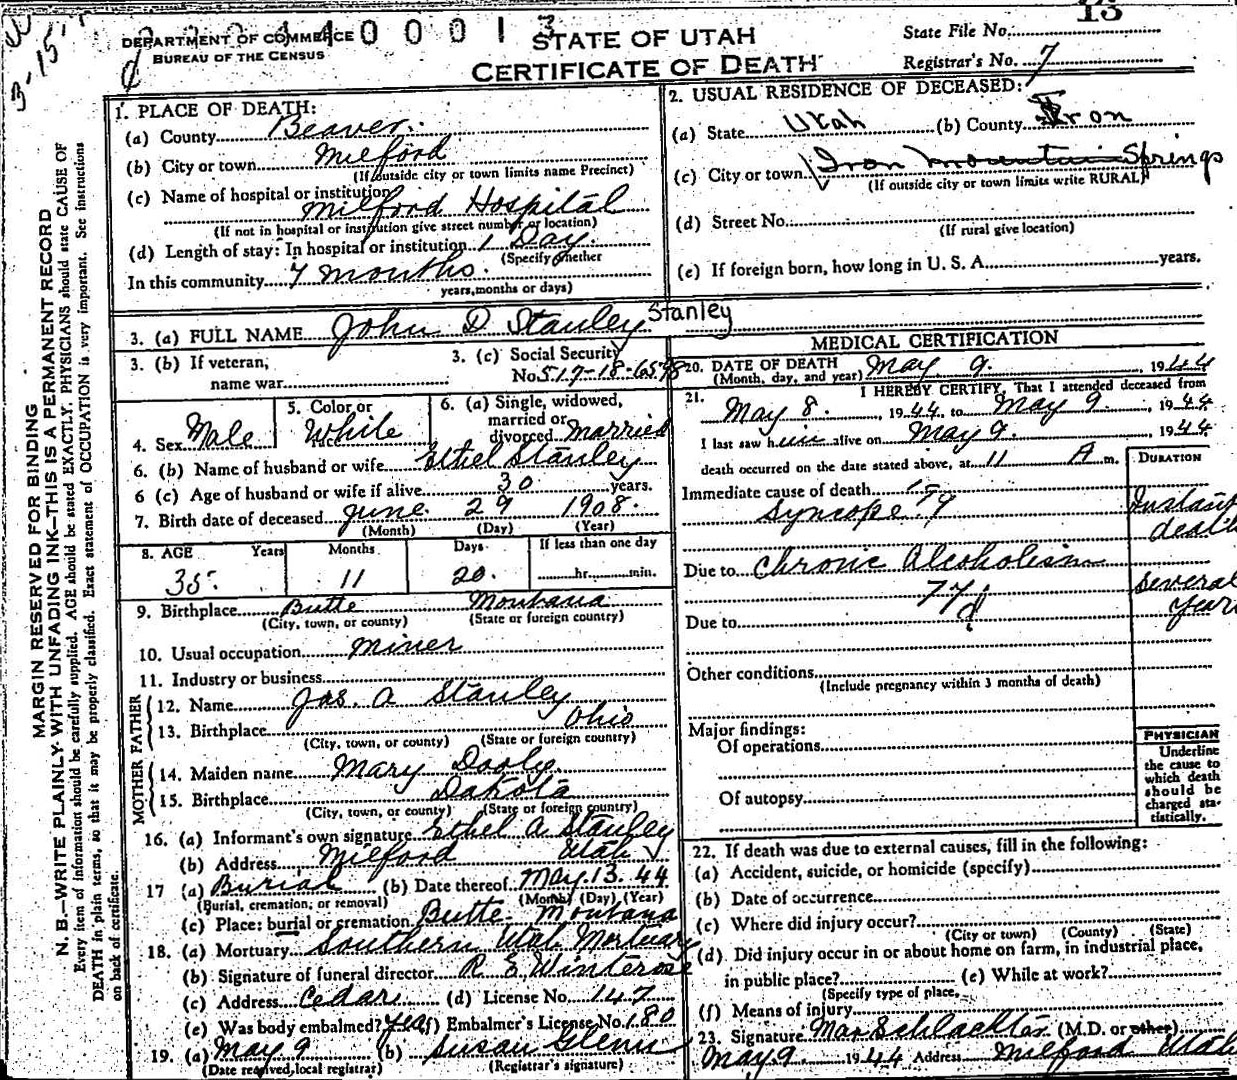 13
B-15
DEPARTMENT OF COMMERCE
BUREAU OF THE CENSUS
4 0 0 0 1 3
STATE OF UTAH
CERTIFICATE OF DEATH
State File No.
Registrar's No. 7
MARGIN RESERVED FOR BINDING
N. B.—WRITE PLAINLY WITH UNFADING INK—THIS IS A PERMANENT RECORD
Every item of information should be carefully supplied. AGE should be stated EXACTLY. PHYSICIANS should state CAUSE OF
DEATH in plain terms, so that it may be properly classified. Exact statement of OCCUPATION is very important. See instructions
on back of certificate.
1. PLACE OF DEATH:
(a) County Beaver
(b) City or town Milford
(If outside city or town limits name Precinct)
(c) Name of hospital or institution
Milford Hospital
(If not in hospital or institution give street number or location)
(d) Length of stay: In hospital or institution 1 Day
(Specify whether
In this community 7 months.
years, months or days)
2. USUAL RESIDENCE OF DECEASED:
(a) State Utah (b) County Iron
(c) City or town Iron mountain Springs
(If outside city or town limits write RURAL)
(d) Street No.
(If rural give location)
(e) If foreign born, how long in U. S. A. years.
3. (a) FULL NAME John D Stanley Stanley
3. (b) If veteran,
name war
3. (c) Social Security
No. 517-18-6598
4. Sex Male
5. Color or
race White
6. (a) Single, widowed,
married or
divorced married
6. (b) Name of husband or wife Ethel Stanley
6 (c) Age of husband or wife if alive 30 years.
7. Birth date of deceased June 29 1908.
(Month) (Day) (Year)
8. AGE Years Months Days If less than one day
35 11 20 hr. min.
9. Birthplace Butte Montana
(City, town, or county) (State or foreign country)
10. Usual occupation miner
11. Industry or business
FATHER
12. Name Jas. A Stanley
13. Birthplace Ohio
(City, town, or county) (State or foreign country)
MOTHER
14. Maiden name Mary
15. Birthplace Dakota
(City, town, or county) (State or foreign country)
16. (a) Informant's own signature Ethel A Stanley
(b) Address Milford Utah
17 (a) Burial (b) Date thereof May. 13. 44
(Burial, cremation, or removal) (Month) (Day) (Year)
(c) Place: burial or cremation Butte Montana
18. (a) Mortuary Southern Utah Mortuary
(b) Signature of funeral director R E Winterose
(c) Address Cedar (d) License No. 147
(e) Was body embalmed? yes (f) Embalmer's License No. 180
19. (a) May 9 (b) Susan Glenn
(Date received, local registrar) (Registrar's signature)
MEDICAL CERTIFICATION
20. DATE OF DEATH May 9. , 1944
(Month, day, and year)
21. I HEREBY CERTIFY, That I attended deceased from
May 8. , 1944, to May 9. , 1944
I last saw him alive on May 9. , 1944
death occurred on the date stated above, at 11 A m.
DURATION
Immediate cause of death
Syncope
Instant
death
Due to Chronic Alcoholism
several
years
77d
Due to
Other conditions
(Include pregnancy within 3 months of death)
Major findings:
Of operations
Of autopsy
PHYSICIAN
Underline
the cause to
which death
should be
charged sta-
tistically.
22. If death was due to external causes, fill in the following:
(a) Accident, suicide, or homicide (specify)
(b) Date of occurrence
(c) Where did injury occur?
(City or town) (County) (State)
(d) Did injury occur in or about home on farm, in industrial place,
in public place? (e) While at work?
(Specify type of place.
(f) Means of injury
23. Signature Max Schlachter (M.D. or other)
May 9. 1944 Address Milford Utah